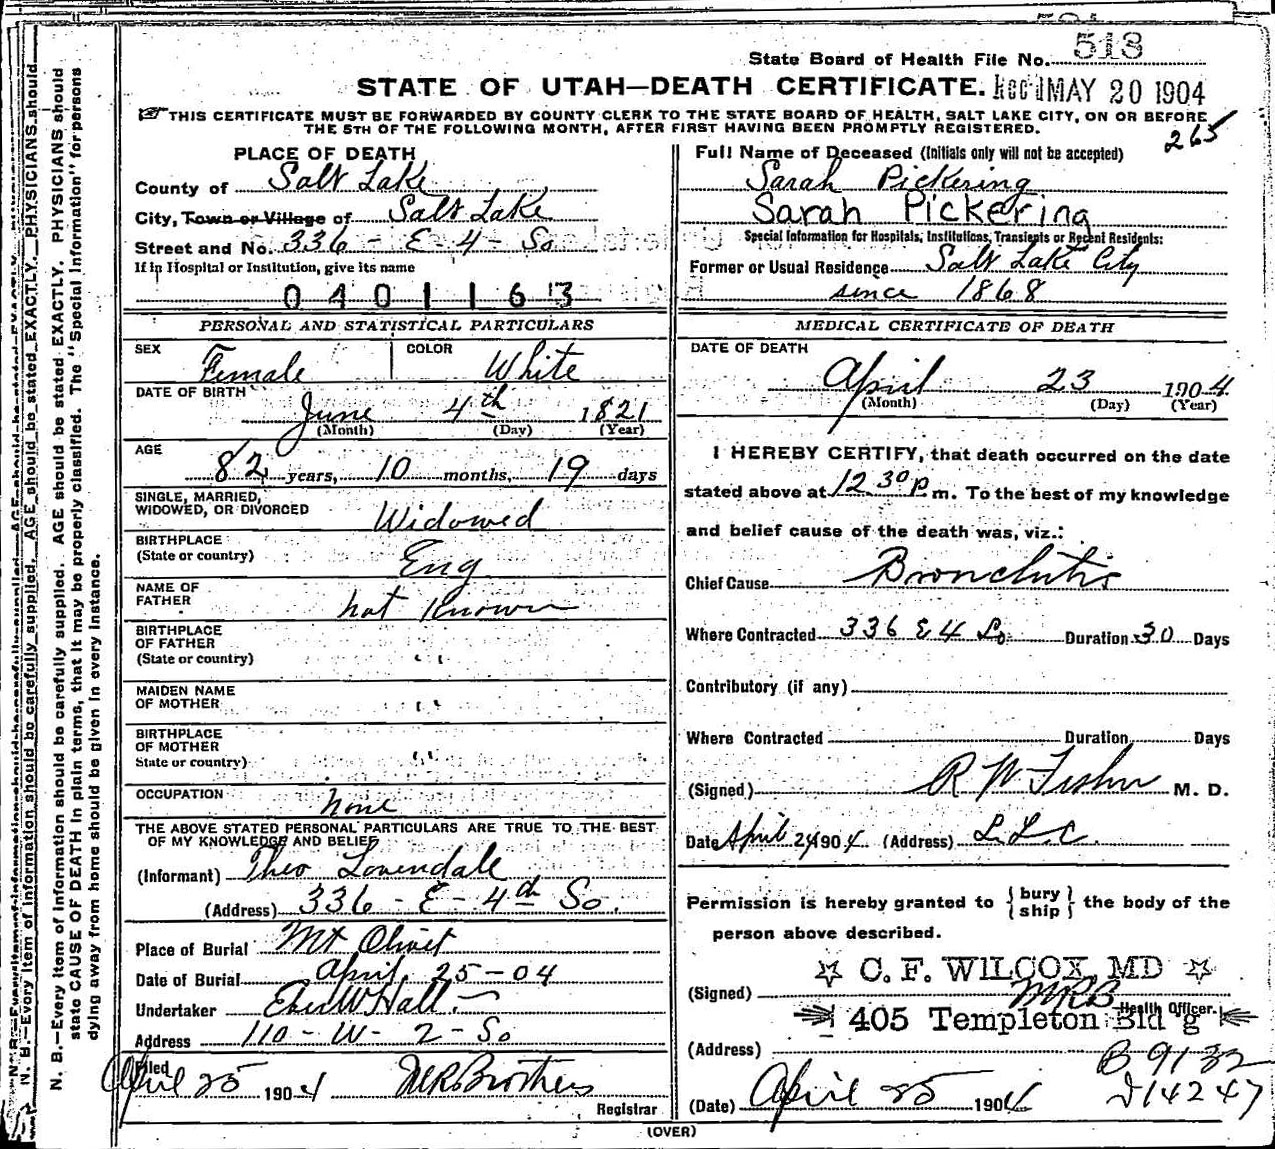 State Board of Health File No. 513
STATE OF UTAH—DEATH CERTIFICATE.
MAY 20 1904
THIS CERTIFICATE MUST BE FORWARDED BY COUNTY CLERK TO THE STATE BOARD OF HEALTH, SALT LAKE CITY, ON OR BEFORE
THE 5TH OF THE FOLLOWING MONTH, AFTER FIRST HAVING BEEN PROMPTLY REGISTERED.
265
N. B.—Every item of information should be carefully supplied. AGE should be stated EXACTLY. PHYSICIANS should
N. B.—Every item of information should be carefully supplied. AGE should be stated EXACTLY. PHYSICIANS should
state CAUSE OF DEATH in plain terms, that it may be properly classified. The "Special Information" for persons
dying away from home should be given in every instance.
PLACE OF DEATH
County of Salt Lake
City, Town or Village of Salt Lake
Street and No. 336 - E - 4 - So
If in Hospital or Institution, give its name
0401163
PERSONAL AND STATISTICAL PARTICULARS
SEX Female COLOR White
DATE OF BIRTH
June 4th 1821
(Month) (Day) (Year)
AGE
82 years, 10 months, 19 days
SINGLE, MARRIED,
WIDOWED, OR DIVORCED Widowed
BIRTHPLACE
(State or country) Eng
NAME OF
FATHER not Known
BIRTHPLACE
OF FATHER
(State or country) " "
MAIDEN NAME
OF MOTHER " "
BIRTHPLACE
OF MOTHER
State or country) " "
OCCUPATION none
THE ABOVE STATED PERSONAL PARTICULARS ARE TRUE TO THE BEST
OF MY KNOWLEDGE AND BELIEF
(Informant) Theo Lovendale
(Address) 336 - E - 4th So.
Place of Burial Mt Olivet
Date of Burial April 25-04
Undertaker Eber W Hall
Address 110 - W - 2 - So
Filed
April 25 1904 MRBrothers
Registrar
Full Name of Deceased (Initials only will not be accepted)
Sarah Pickering
Sarah Pickering
Special Information for Hospitals, Institutions, Transients or Recent Residents:
Former or Usual Residence Salt Lake City
since 1868
MEDICAL CERTIFICATE OF DEATH
DATE OF DEATH
April 23 1904
(Month) (Day) (Year)
I HEREBY CERTIFY, that death occurred on the date
stated above at 12 30 P m. To the best of my knowledge
and belief cause of the death was, viz.:
Chief Cause Bronchitis
Where Contracted 336 E 4 So Duration 30 Days
Contributory (if any)
Where Contracted Duration Days
(Signed) R W Fisher M. D.
Date April 24 1904 (Address) S. L. C.
Permission is hereby granted to {bury
ship} the body of the
person above described.
C. F. WILCOX, MD
(Signed) MRB Health Officer.
405 Templeton Bld'g
(Address)
B 9132
(Date) April 25 1904
J14247
(OVER)